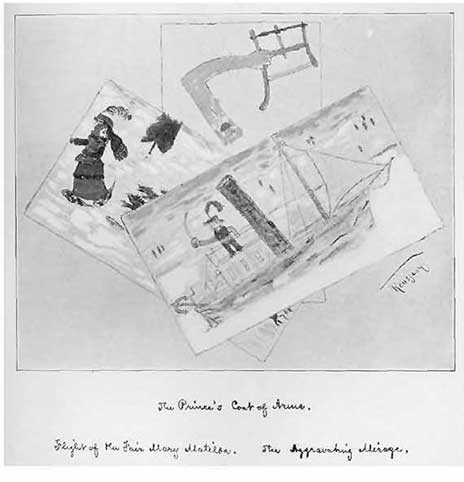 The Prince's Coat of Arms.
Flight of the Fair Mary Matilda. The Aggravating Mirage.